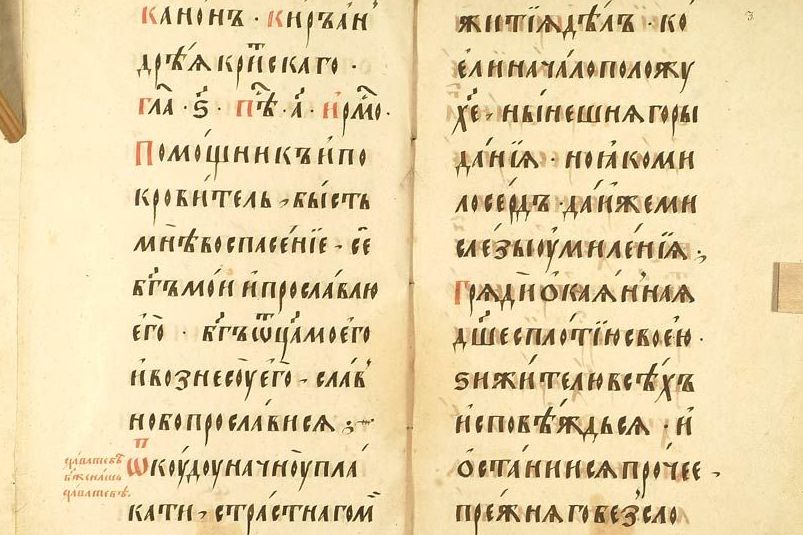 канонъ · киръ ан
дрѣꙗ критскаго ·
гла · ѕ҃ · пѣ · а҃ · ирмо ·
Помо́щникъ и по
крови́тель , бы́сть
мнѣ во спасе́нїе , се́
бг҃ъ мо́и и просла́влю
его̀ · бг҃ъ ѿца̀ моего̀
и вознесоу̀ его̀ , сла́в
но бо просла́вися ;
слава тебѣ
бж҃е нашъ
слава тебѣ .
Ѿкоу́доу начноу̀ пла́
кати , стра́стнаго ми
житїѧ дѣ́лъ · ко́
ели нача́ло положу
хе҃ , ны́нешнꙗ горы
да́нїꙗ · но ꙗко ми
лосе́рдъ · да́и же ми
сле́зы оумиле́нїꙗ ;
Грѧдѝ ѡкаꙗ́ннаꙗ
дш҃е с пло́тїю свое́ю ·
ѕижи́телю всѣ́хъ
исповѣ́ждьсѧ · и
оста́нисѧ про́чее ,
пре́жнꙗго безсло